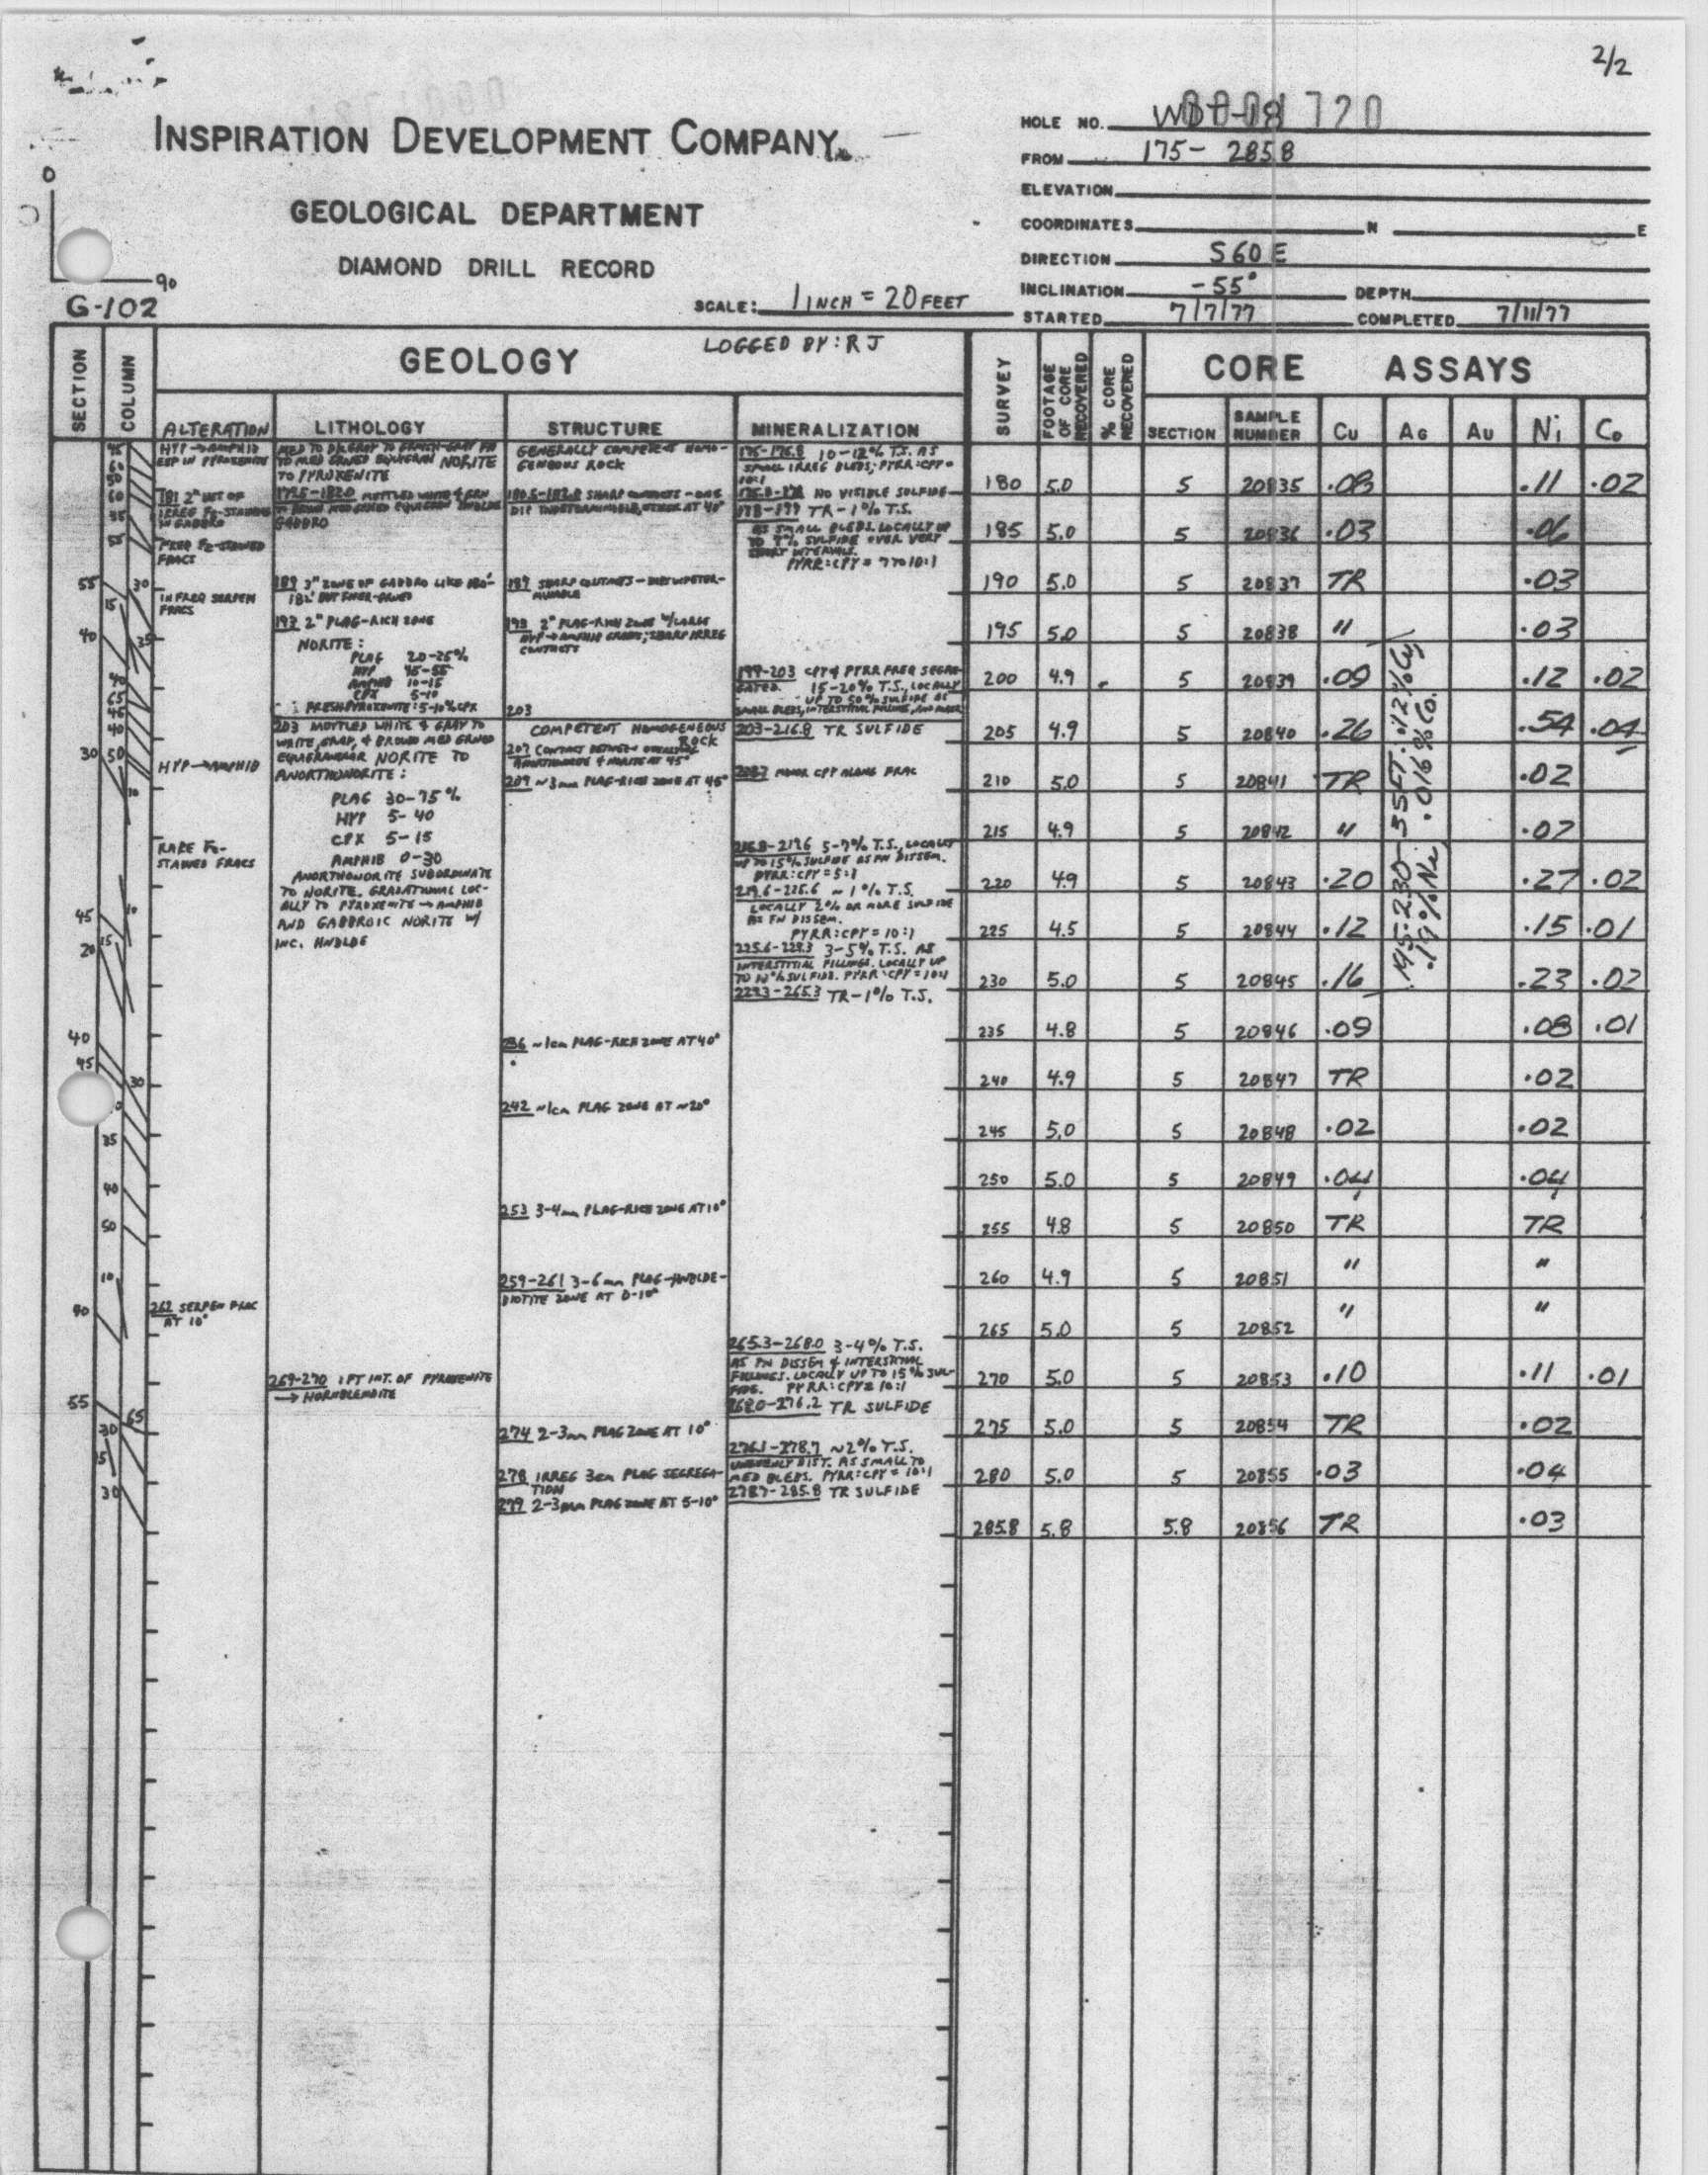 2/2
INSPIRATION DEVELOPMENT COMPANY
GEOLOGICAL DEPARTMENT
DIAMOND DRILL RECORD
0
90
G-102
SCALE: 1 INCH = 20 FEET
HOLE NO. 720
FROM 175- 285.8
ELEVATION
COORDINATES N E
DIRECTION S 60 E
INCLINATION -55° DEPTH
STARTED 7/7/77 COMPLETED 7/11/77
SECTION COLUMN GEOLOGY LOGGED BY: RJ
SURVEY FOOTAGE OF CORE RECOVERED % CORE RECOVERED CORE ASSAYS
ALTERATION LITHOLOGY STRUCTURE MINERALIZATION
SECTION SAMPLE NUMBER Cu AG AU Ni Co
HYP → AMPHIB
INFREQ SERPEN
FRACS
HYP → AMPHIB
RARE FE-
STAINED FRACS
262 SERPEN FRAC
AT 10°
TO MED GRNED EQUIGRAN NORITE
TO PYROXENITE
GABBRO
193 2" PLAG-RICH ZONE
NORITE:
PLAG 20-25%
HYP 45-55
AMPHIB 10-15
CPX 5-10
FRESH PYROXENITE: 5-10% CPX
203 MOTTLED WHITE & GRAY TO
WHITE, GRAY, & BROWN MED GRNED
EQUIGRANULAR NORITE TO
ANORTHONORITE:
PLAG 30-75%
HYP 5-40
CPX 5-15
AMPHIB 0-30
ANORTHONORITE SUBORDINATE
TO NORITE. GRADATIONAL LOC-
ALLY TO PYROXENITE → AMPHIB
AND GABBROIC NORITE W/
INC. HNBLDE
269-270 1 FT INT. OF PYROXENITE
→ HORNBLENDITE
GENERALLY COMPETENT HOMO-
GENEOUS ROCK
193 2" PLAG-RICH ZONE W/LARGE
CONTACTS
203
COMPETENT HOMOGENEOUS
ROCK
209 ~3mm PLAG-RICH ZONE AT 45°
236 ~1cm PLAG-RICH ZONE AT 40°
242 ~1cm PLAG ZONE AT ~20°
253 3-4mm PLAG-RICH ZONE AT 10°
259-261 3-6mm PLAG-HNBLDE-
BIOTITE ZONE AT 0-10°
274 2-3mm PLAG ZONE AT 10°
278 IRREG 3cm PLAG SEGREGA-
TION
279 2-3mm PLAG ZONE AT 5-10°
175-176.8 10-12% T.S. AS
SMALL IRREG BLEBS; PYRR:CPY =
10:1
NO VISIBLE SULFIDE
TR-1% T.S.
AS SMALL BLEBS. LOCALLY UP
TO 7% SULFIDE OVER VERY
SHORT INTERVALS.
PYRR:CPY = 7 TO 10:1
199-203 CPY & PYRR FREQ SEGRE-
GATED. 15-20% T.S., LOCALLY
UP TO 50% SULFIDE AS
203-216.8 TR SULFIDE
MINOR CPY ALONG FRAC
216.8-219.6 5-7% T.S., LOCALLY
UP TO 15% SULFIDE AS FN DISSEM.
PYRR:CPY = 5:1
219.6-225.6 ~1% T.S.
LOCALLY 2% OR MORE SULFIDE
AS FN DISSEM.
PYRR:CPY = 10:1
225.6-229.3 3-5% T.S. AS
INTERSTITIAL FILLINGS. LOCALLY UP
TO 10% SULFIDE. PYRR:CPY = 10:1
229.3-265.3 TR-1% T.S.
265.3-268.0 3-4% T.S.
AS FN DISSEM & INTERSTITIAL
FILLINGS. LOCALLY UP TO 15% SUL-
FIDE. PYRR:CPY = 10:1
268.0-276.2 TR SULFIDE
~2% T.S.
UNEVENLY DIST. AS SMALL TO
MED BLEBS. PYRR:CPY = 10:1
278.7-285.8 TR SULFIDE
180 5.0 5 20835 .08 .11 .02
185 5.0 5 20836 .03 .06
190 5.0 5 20837 TR .03
195 5.0 5 20838 " .03
200 4.9 5 20839 .09 .12 .02
205 4.9 5 20840 .26 .54 .04
210 5.0 5 20841 TR .02
215 4.9 5 20842 " .02
220 4.9 5 20843 .20 .27 .02
225 4.5 5 20844 .12 .15 .01
230 5.0 5 20845 .16 .23 .02
235 4.8 5 20846 .09 .08 .01
240 4.9 5 20847 TR .02
245 5.0 5 20848 .02 .02
250 5.0 5 20849 .04 .04
255 4.8 5 20850 TR TR
260 4.9 5 20851 " "
265 5.0 5 20852 " "
270 5.0 5 20853 .10 .11 .01
275 5.0 5 20854 TR .02
280 5.0 5 20855 .03 .04
285.8 5.8 5.8 20856 TR .03
195-230-35FT. .12% Cu,
.19% Ni, .016% Co.